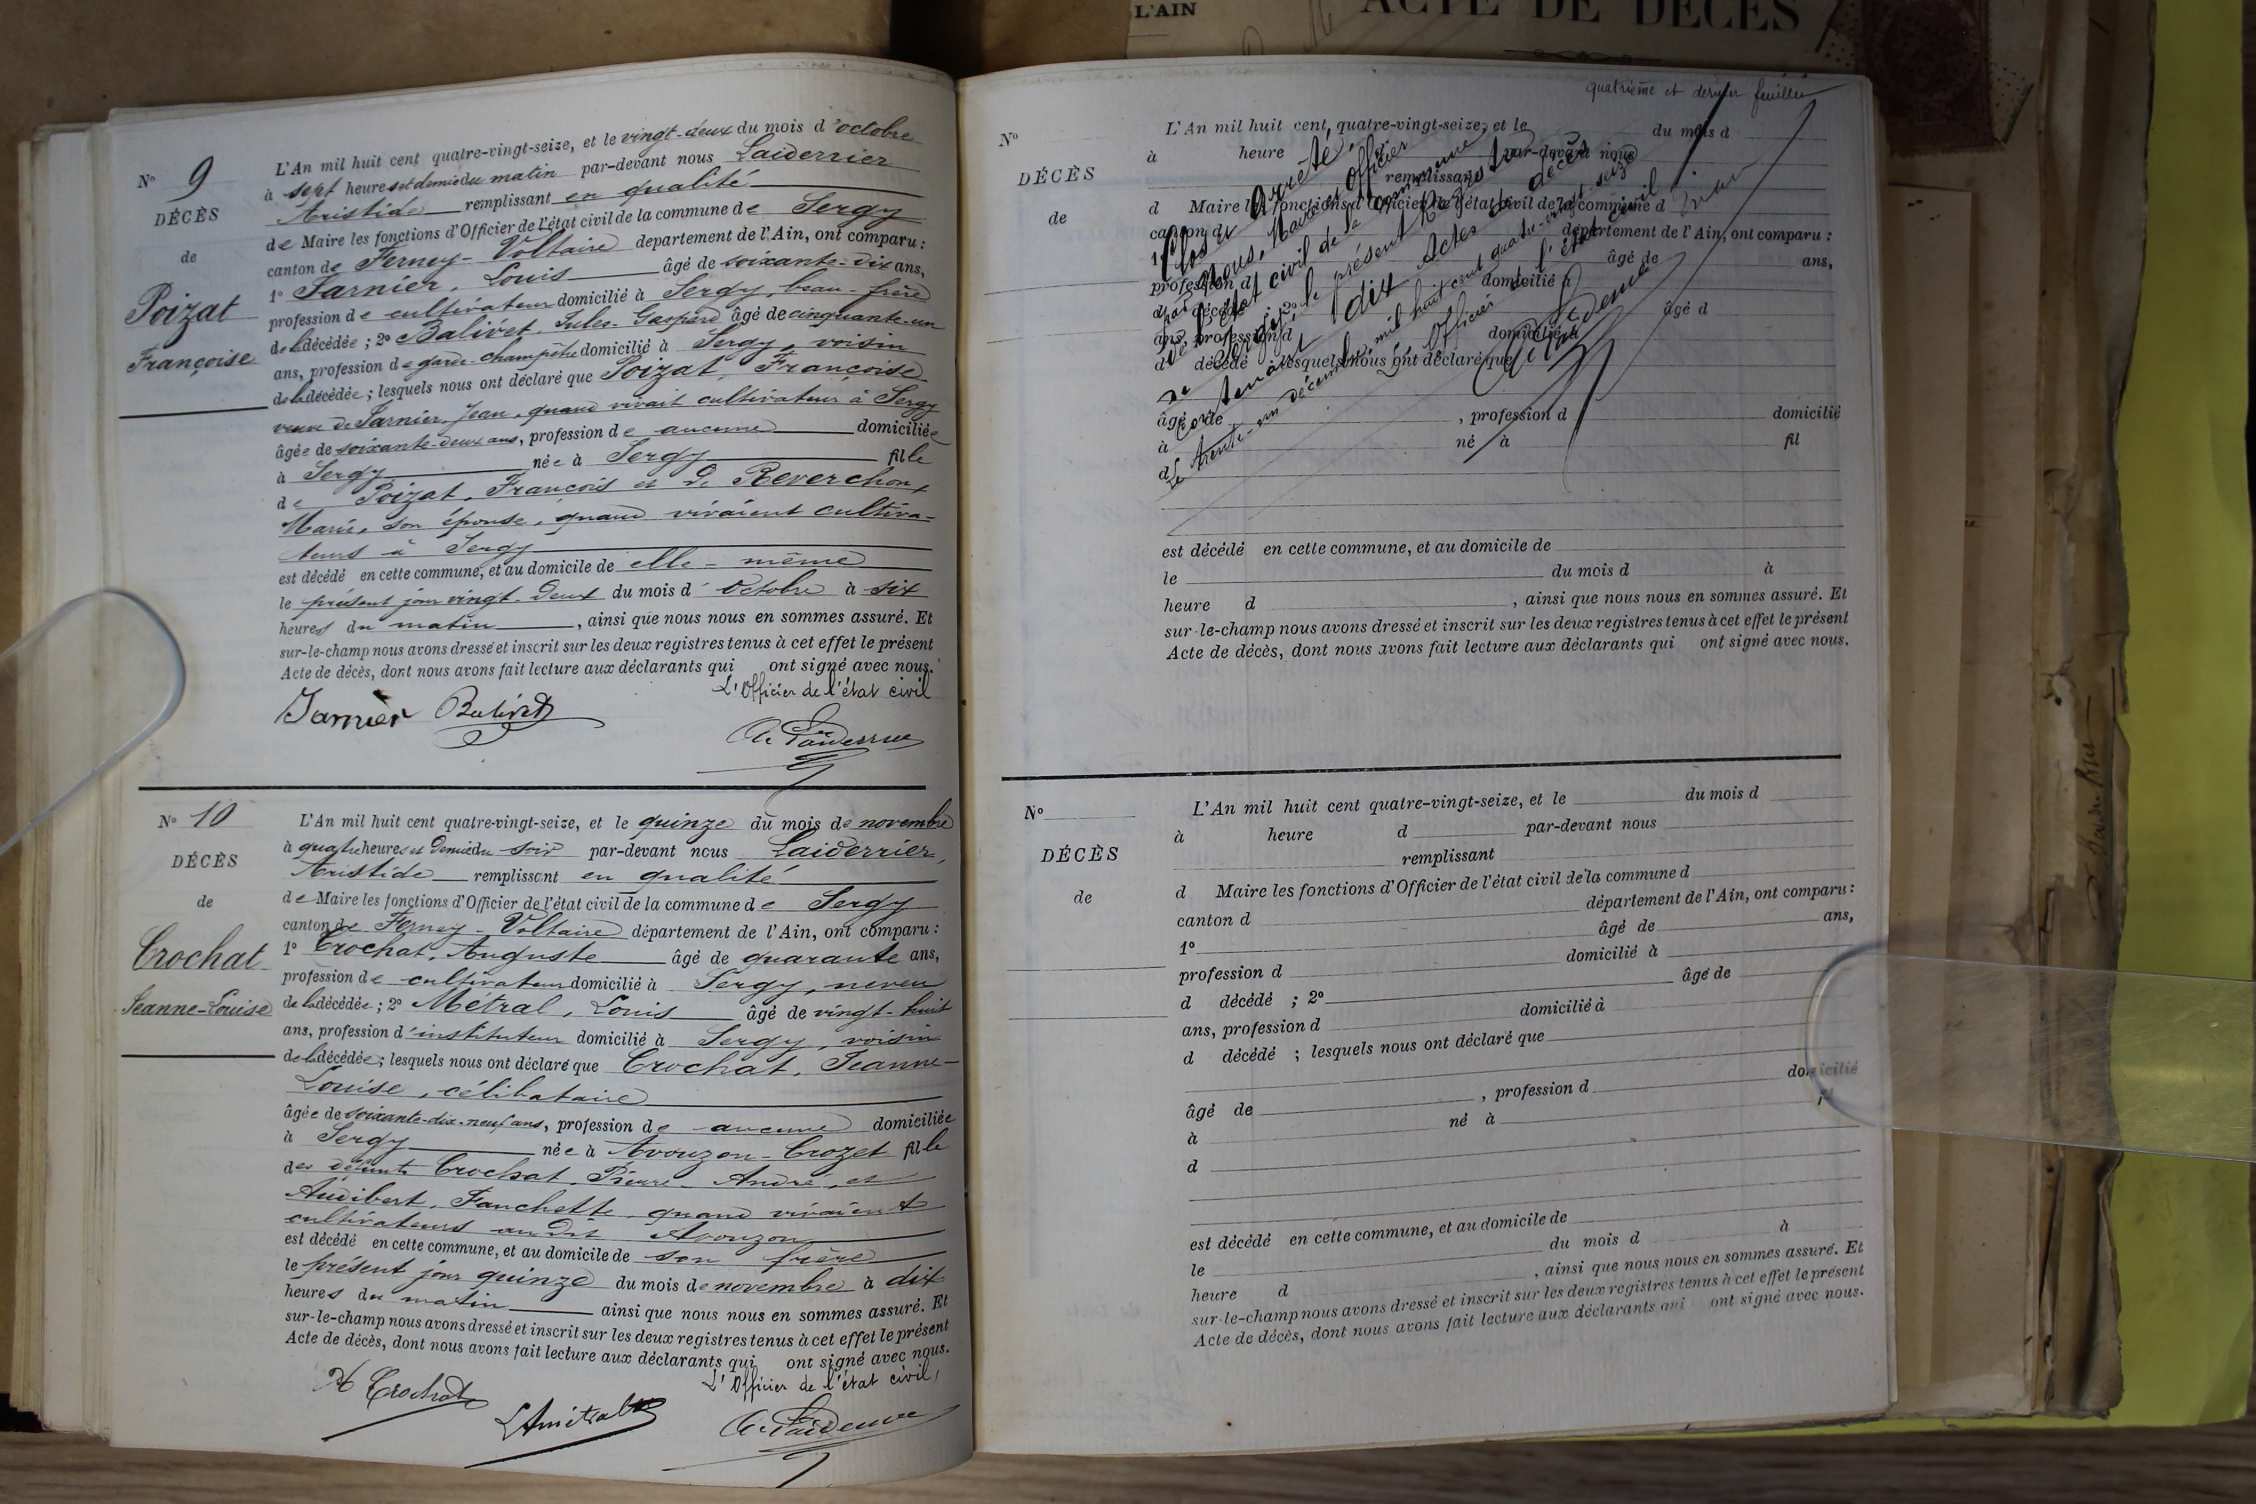 L'AIN
ACTE DE DÉCÈS
N° 9
DÉCÈS
de
Poizat
Françoise
L'An mil huit cent quatre-vingt-seize, et le vingt-deux du mois d'octobre
à sept heures et demie du matin par-devant nous Laiderrier
Aristide remplissant en qualité
de Maire les fonctions d'Officier de l'état civil de la commune de Sergy
canton de Ferney-Voltaire département de l'Ain, ont comparu :
1° Jarnier, Louis âgé de soixante-dix ans,
profession de cultivateur domicilié à Sergy, beau-frère
de la décédée ; 2° Balivet, Jules-Gaspard âgé de cinquante-un
ans, profession de garde-champêtre domicilié à Sergy, voisin
de la décédée ; lesquels nous ont déclaré que Poizat, Françoise
veuve de Jarnier, Jean, quand vivait cultivateur à Sergy
âgée de soixante-deux ans, profession de aucune domiciliée
à Sergy née à Sergy fille
de Poizat, François et de Reverchon,
Marie, son épouse, quand vivaient cultiva-
teurs à Sergy
est décédé en cette commune, et au domicile de elle-même
le présent jour vingt-deux du mois d'octobre à six
heures du matin , ainsi que nous nous en sommes assuré. Et
sur-le-champ nous avons dressé et inscrit sur les deux registres tenus à cet effet le présent
Acte de décès, dont nous avons fait lecture aux déclarants qui ont signé avec nous.
L'Officier de l'état civil
Jarnier Balivet
A. Laiderrier
N° 10
DÉCÈS
de
Crochat
Jeanne-Louise
L'An mil huit cent quatre-vingt-seize, et le quinze du mois de novembre
à quatre heures et demie du soir par-devant nous Laiderrier,
Aristide remplissant en qualité
de Maire les fonctions d'Officier de l'état civil de la commune de Sergy
canton de Ferney-Voltaire département de l'Ain, ont comparu :
1° Crochat, Auguste âgé de quarante ans,
profession de cultivateur domicilié à Sergy, neveu
de la décédée ; 2° Métral, Louis âgé de vingt-huit
ans, profession d'instituteur domicilié à Sergy, voisin
de la décédée ; lesquels nous ont déclaré que Crochat, Jeanne-
Louise, célibataire
âgée de soixante-dix-neuf ans, profession de aucune domiciliée
à Sergy née à Avouzon-Crozet fille
des défunts Crochat, Pierre-André, et
Audibert, Fanchette, quand vivaient
cultivateurs au dit Avouzon
est décédé en cette commune, et au domicile de son frère
le présent jour quinze du mois de novembre à dix
heures du matin ainsi que nous nous en sommes assuré. Et
sur-le-champ nous avons dressé et inscrit sur les deux registres tenus à cet effet le présent
Acte de décès, dont nous avons fait lecture aux déclarants qui ont signé avec nous.
L'Officier de l'état civil,
A Crochat
Métral
A. Laiderrier
quatrième et dernier feuillet
N°
DÉCÈS
de
L'An mil huit cent quatre-vingt-seize, et le du mois d
à heure d par-devant nous
remplissant
d Maire les fonctions d'Officier de l'état civil de la commune d
canton d département de l'Ain, ont comparu :
1° âgé de ans,
profession d domicilié à
d décédé ; 2° âgé d
ans, profession d domicilié à
d décédé lesquels nous ont déclaré que
âgé de , profession d domicilié
à né à fil
d
Clos et Arrêté,
par Nous, Maire et Officier
de l'état civil de la commune
de Sergy, le présent Registre
contenant dix Actes de décès
Le trente-un décembre mil huit cent quatre-vingt-seize
L'Officier de l'état civil
est décédé en cette commune, et au domicile de
le du mois d à
heure d , ainsi que nous nous en sommes assuré. Et
sur-le-champ nous avons dressé et inscrit sur les deux registres tenus à cet effet le présent
Acte de décès, dont nous avons fait lecture aux déclarants qui ont signé avec nous.
N°
DÉCÈS
de
L'An mil huit cent quatre-vingt-seize, et le du mois d
à heure d par-devant nous
remplissant
d Maire les fonctions d'Officier de l'état civil de la commune d
canton d département de l'Ain, ont comparu :
1° âgé de ans,
profession d domicilié à
d décédé ; 2° âgé de
ans, profession d domicilié à
d décédé ; lesquels nous ont déclaré que
âgé de , profession d domicilié
à né à fil
d
est décédé en cette commune, et au domicile de
le du mois d à
heure d , ainsi que nous nous en sommes assuré. Et
sur-le-champ nous avons dressé et inscrit sur les deux registres tenus à cet effet le présent
Acte de décès, dont nous avons fait lecture aux déclarants qui ont signé avec nous.